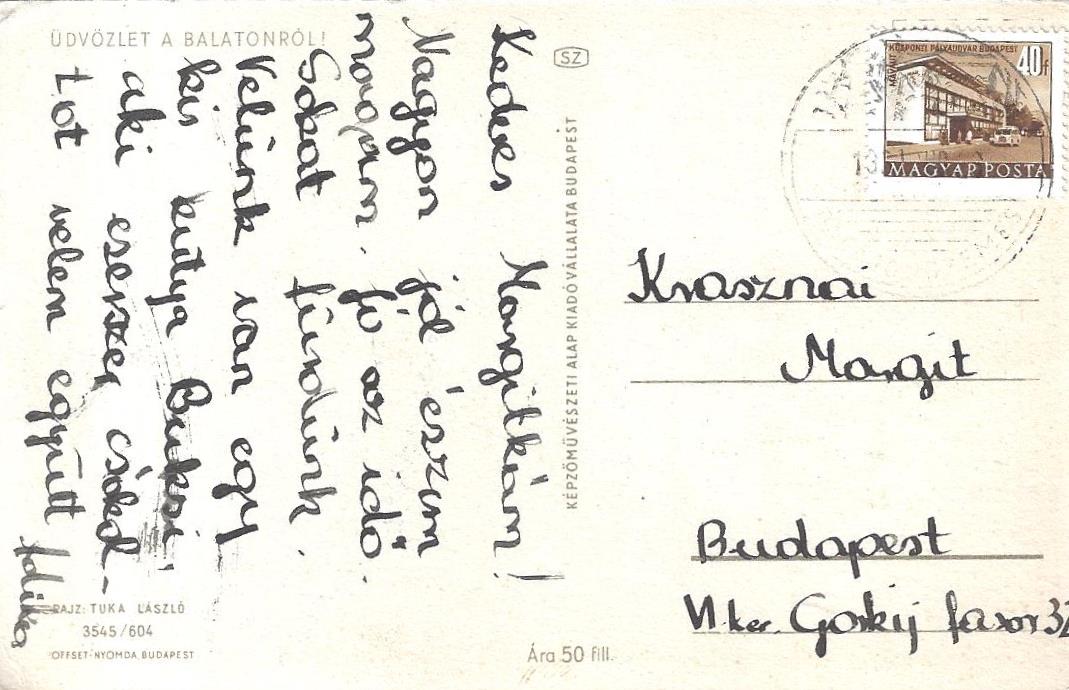 ÜDVÖZLET A BALATONRÓL!
Kedves Margitkám!
Nagyon jól érzüm
magam. Jó az idő.
Sokat fürdünk.
Velünk van egy
kis kutya Buksi
aki ezerszer csókol-
tot velem együtt
Ildikó
RAJZ: TUKA LÁSZLÓ
3545/604
OFFSET-NYOMDA, BUDAPEST
SZ
KÉPZŐMŰVÉSZETI ALAP KIADÓVÁLLALATA BUDAPEST
Ára 50 fill.
MÁVAUT KÖZPONTI PÁLYAUDVAR BUDAPEST
40f
MAGYAR POSTA
Krasznai
Margit
Budapest
VI. ker. Gorkij fasor 32